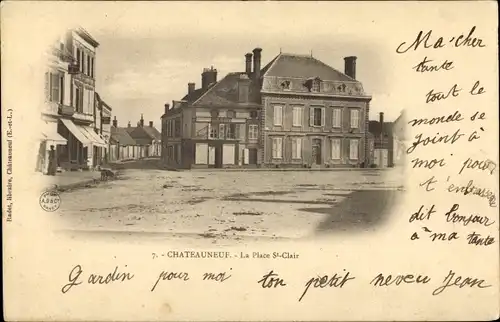 Ma cher
tante
tout le
monde se
joint à
moi pour
t'embra
dit bonjour
à ma tante
7. - CHATEAUNEUF. - La Place St-Clair
Gardin pour moi ton petit neveu Jean
Radet, libraire, Châteauneuf (E.-et-L.)